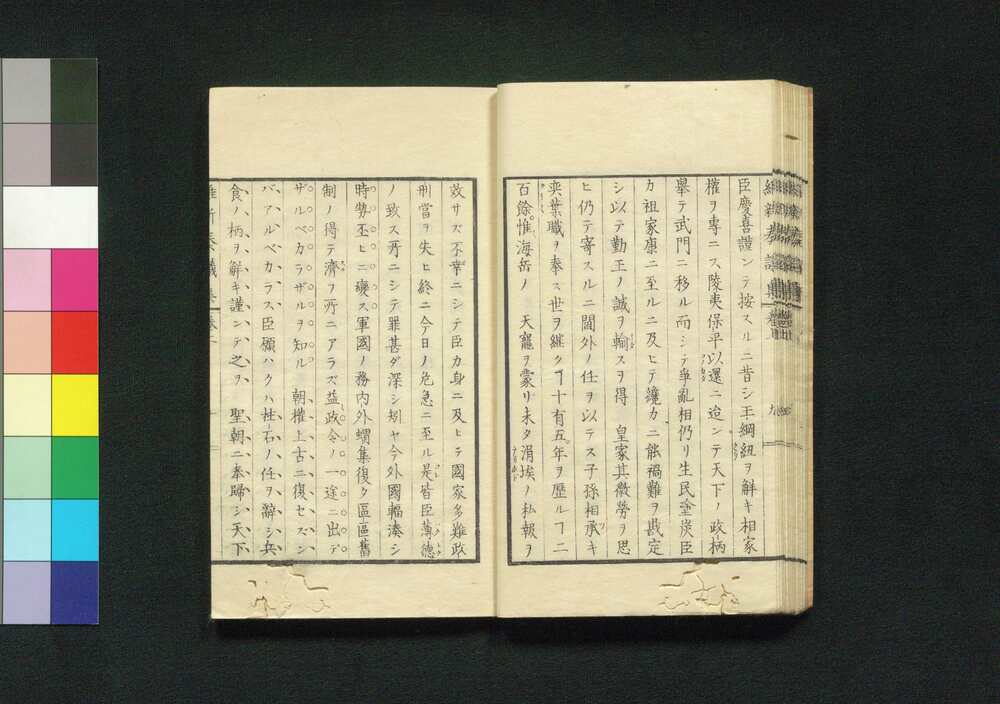 臣慶喜謹ンテ按スルニ昔シ王綱紐ヲ觧キ相家
權ヲ專ニス陵夷保平以還ニ迨ンテ天下ノ政柄
擧テ武門ニ移ル而シテ爭亂相仍リ生民塗炭臣
カ祖家康ニ至ルニ及ヒテ纔カニ能禍難ヲ戡定
シ以テ勤王ノ誠ヲ輸スヲ得 皇家其微勞ヲ思
ヒ仍テ寄スルニ閫外ノ任ヲ以テス子孫相承キ
奕葉職ヲ奉ス世ヲ継クヿ十有五年ヲ歴ルヿ二
百餘惟海岳ノ 天寵ヲ蒙リ未タ涓埃ノ私報ヲ
效サス不幸ニシテ臣カ身ニ及ヒテ國家多難政
刑當ヲ失ヒ終ニ今日ノ危急ニ至ル是皆臣薄德
ノ致ス所ニシテ罪甚ダ深シ矧ヤ今外國輻湊シ
時勢丕ヒニ變ス軍國ノ務内外蝟集復タ區區舊
制ノ得テ濟ヲ所ニアラズ益政令ノ一途ニ出デ
ザルベカラザルヲ知ル 朝權上古ニ復セズン
バアルベカラス臣願ハクハ柱石ノ任ヲ辭シ兵
食ノ柄ヲ觧キ謹ンテ之ヲ 聖朝ニ奉歸シ天下
維新奏議集 卷二